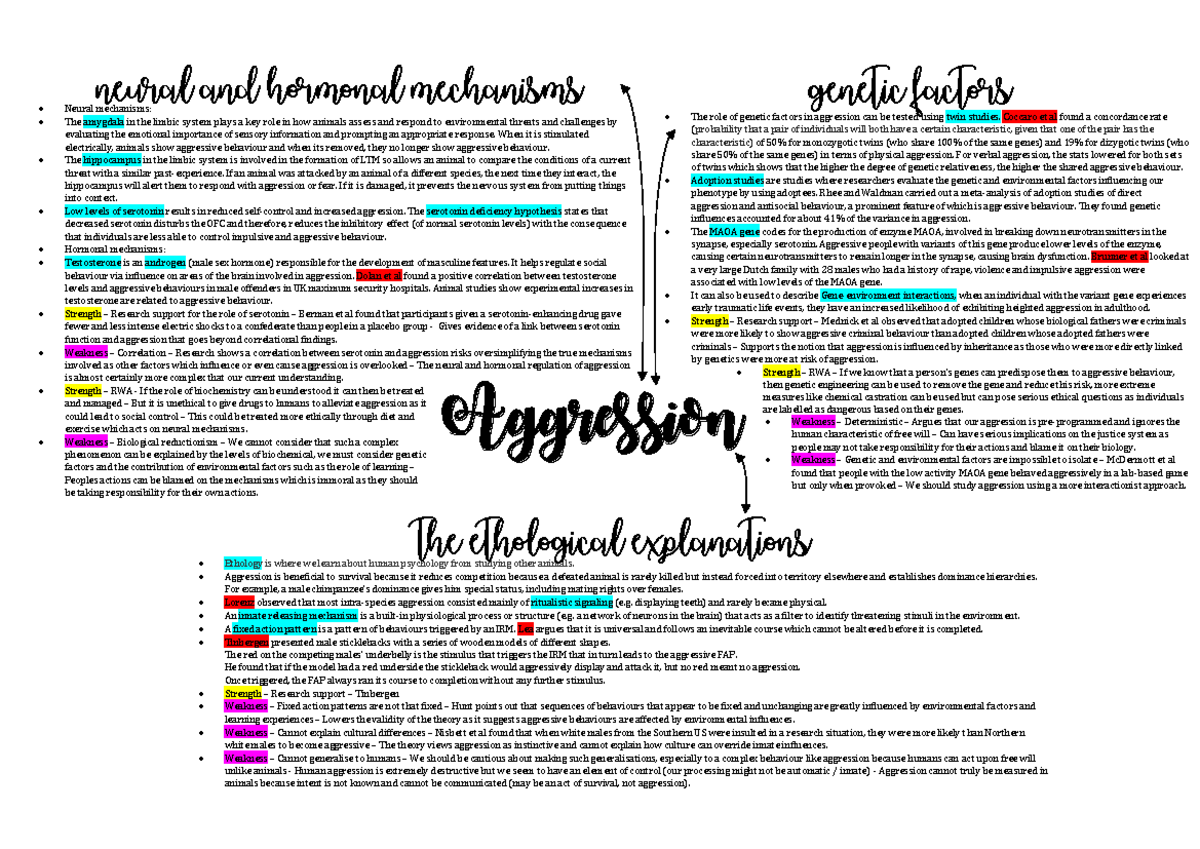 neural and hormonal mechanisms
• Neural mechanisms:
• The amygdala in the limbic system plays a key role in how animals assess and respond to environmental threats and challenges by
evaluating the emotional importance of sensory information and prompting an appropriate response. When it is stimulated
electrically, animals show aggressive behaviour and when its removed, they no longer show aggressive behaviour.
• The hippocampus in the limbic system is involved in the formation of LTM so allows an animal to compare the conditions of a current
threat with a similar past- experience. If an animal was attacked by an animal of a different species, the next time they interact, the
hippocampus will alert them to respond with aggression or fear. If it is damaged, it prevents the nervous system from putting things
into context.
• Low levels of serotonin results in reduced self-control and increased aggression. The serotonin deficiency hypothesis states that
decreased serotonin disturbs the OFC and therefore, reduces the inhibitory effect (of normal serotonin levels) with the consequence
that individuals are less able to control impulsive and aggressive behaviour.
• Hormonal mechanisms:
• Testosterone is an androgen (male sex hormone) responsible for the development of masculine features. It helps regulate social
behaviour via influence on areas of the brain involved in aggression. Dolan et al found a positive correlation between testosterone
levels and aggressive behaviours in male offenders in UK maximum security hospitals. Animal studies show experimental increases in
testosterone are related to aggressive behaviour.
• Strength – Research support for the role of serotonin – Berman et al found that participants given a serotonin-enhancing drug gave
fewer and less intense electric shocks to a confederate than people in a placebo group - Gives evidence of a link between serotonin
function and aggression that goes beyond correlational findings.
• Weakness – Correlation – Research shows a correlation between serotonin and aggression risks oversimplifying the true mechanisms
involved as other factors which influence or even cause aggression is overlooked – The neural and hormonal regulation of aggression
is almost certainly more complex that our current understanding.
• Strength – RWA - If the role of biochemistry can be understood it can then be treated
and managed – But it is unethical to give drugs to humans to alleviate aggression as it
could lead to social control – This could be treated more ethically through diet and
exercise which acts on neural mechanisms.
• Weakness – Biological reductionism – We cannot consider that such a complex
phenomenon can be explained by the levels of biochemical, we must consider genetic
factors and the contribution of environmental factors such as the role of learning –
Peoples actions can be blamed on the mechanisms which is immoral as they should
be taking responsibility for their own actions.
genetic factors
• The role of genetic factors in aggression can be tested using twin studies. Coccaro et al found a concordance rate
(probability that a pair of individuals will both have a certain characteristic, given that one of the pair has the
characteristic) of 50% for monozygotic twins (who share 100% of the same genes) and 19% for dizygotic twins (who
share 50% of the same genes) in terms of physical aggression. For verbal aggression, the stats lowered for both sets
of twins which shows that the higher the degree of genetic relativeness, the higher the shared aggressive behaviour.
• Adoption studies are studies where researchers evaluate the genetic and environmental factors influencing our
phenotype by using adoptees. Rhee and Waldman carried out a meta-analysis of adoption studies of direct
aggression and antisocial behaviour, a prominent feature of which is aggressive behaviour. They found genetic
influences accounted for about 41% of the variance in aggression.
• The MAOA gene codes for the production of enzyme MAOA, involved in breaking down neurotransmitters in the
synapse, especially serotonin. Aggressive people with variants of this gene produce lower levels of the enzyme,
causing certain neurotransmitters to remain longer in the synapse, causing brain dysfunction. Brunner et al looked at
a very large Dutch family with 28 males who had a history of rape, violence and impulsive aggression were
associated with low levels of the MAOA gene.
• It can also be used to describe Gene environment interactions, when an individual with the variant gene experiences
early traumatic life events, they have an increased likelihood of exhibiting heighted aggression in adulthood.
• Strength – Research support – Mednick et al observed that adopted children whose biological fathers were criminals
were more likely to show aggressive criminal behaviour than adopted children whose adopted fathers were
criminals – Supports the notion that aggression is influenced by inheritance as those who were more directly linked
by genetics were more at risk of aggression.
• Strength – RWA – If we know that a person's genes can predispose them to aggressive behaviour,
then genetic engineering can be used to remove the gene and reduce this risk, more extreme
measures like chemical castration can be used but can pose serious ethical questions as individuals
are labelled as dangerous based on their genes.
• Weakness – Deterministic – Argues that our aggression is pre-programmed and ignores the
human characteristic of free will – Can have serious implications on the justice system as
people may not take responsibility for their actions and blame it on their biology.
• Weakness – Genetic and environmental factors are impossible to isolate – McDermott et al
found that people with the low activity MAOA gene behaved aggressively in a lab-based game
but only when provoked – We should study aggression using a more interactionist approach.
Aggression
The ethological explanations
• Ethology is where we learn about human psychology from studying other animals.
• Aggression is beneficial to survival because it reduces competition because a defeated animal is rarely killed but instead forced into territory elsewhere and establishes dominance hierarchies.
For example, a male chimpanzee's dominance gives him special status, including mating rights over females.
• Lorenz observed that most intra-species aggression consisted mainly of ritualistic signaling (e.g. displaying teeth) and rarely became physical.
• An innate releasing mechanism is a built-in physiological process or structure (e.g. a network of neurons in the brain) that acts as a filter to identify threatening stimuli in the environment.
• A fixed action pattern is a pattern of behaviours triggered by an IRM. Lea argues that it is universal and follows an inevitable course which cannot be altered before it is completed.
• Tinbergen presented male sticklebacks with a series of wooden models of different shapes.
The red on the competing males' underbelly is the stimulus that triggers the IRM that in turn leads to the aggressive FAP.
He found that if the model had a red underside the stickleback would aggressively display and attack it, but no red meant no aggression.
Once triggered, the FAP always ran its course to completion without any further stimulus.
• Strength – Research support – Tinbergen
• Weakness – Fixed action patterns are not that fixed – Hunt points out that sequences of behaviours that appear to be fixed and unchanging are greatly influenced by environmental factors and
learning experiences – Lowers the validity of the theory as it suggests aggressive behaviours are affected by environmental influences.
• Weakness – Cannot explain cultural differences – Nisbett et al found that when white males from the Southern US were insulted in a research situation, they were more likely than Northern
white males to become aggressive – The theory views aggression as instinctive and cannot explain how culture can override innate influences.
• Weakness – Cannot generalise to humans – We should be cautious about making such generalisations, especially to a complex behaviour like aggression because humans can act upon free will
unlike animals - Human aggression is extremely destructive but we seem to have an element of control (our processing might not be automatic / innate) - Aggression cannot truly be measured in
animals because intent is not known and cannot be communicated (may be an act of survival, not aggression).